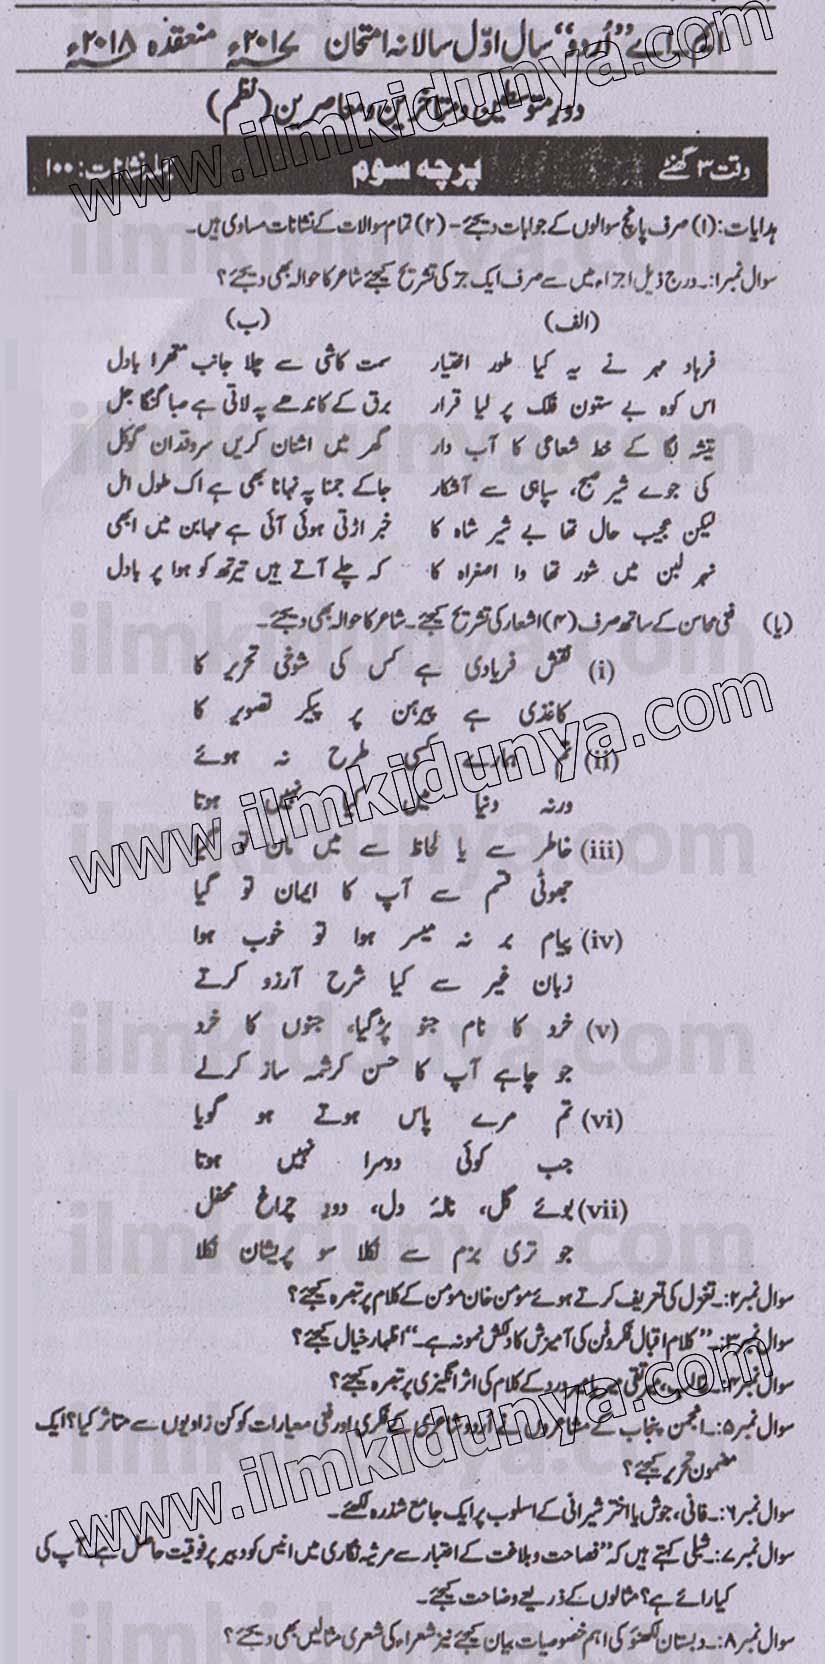 ایم۔اے "اُردو" سال اوّل سالانہ امتحان ۲۰۱۷ء منعقدہ ۲۰۱۸ء
دورِ متوسطین ومتاخرین ومعاصرین (نظم)
وقت ۳ گھنٹے پرچہ سوم کل نشانات: ۱۰۰
ہدایات: (۱) صرف پانچ سوالوں کے جوابات دیجئے - (۲) تمام سوالات کے نشانات مساوی ہیں۔
سوال نمبر۱:۔ درج ذیل اجزاء میں سے صرف ایک جز کی تشریح کیجئے شاعر کا حوالہ بھی دیجئے؟
(الف) (ب)
فرہاد مہر نے یہ کیا طور اختیار سمت کاشی سے چلا جانب متھرا بادل
اس کوہ بے ستون فلک پر لیا قرار برق کے کاندھے پہ لاتی ہے صبا گنگا جل
تیشہ لگا کے خط شعاعی کا آب دار گھر میں اشنان کریں سروقدان گوکل
کی جوے شیر صبح، سپاہی سے آشکار جاکے جمنا پہ نہانا بھی ہے اک طول امل
لیکن عجیب حال تھا بے شیر شاہ کا خبر اڑتی ہوئی آئی ہے مہابن میں ابھی
نہر لبن میں شور تھا وا اصغراہ کا کہ چلے آتے ہیں تیرتھ کو ہوا پر بادل
(یا) فنی محاسن کے ساتھ صرف (۴) اشعار کی تشریح کیجئے۔ شاعر کا حوالہ بھی دیجئے۔
(i) نقش فریادی ہے کس کی شوخی تحریر کا
کاغذی ہے پیرہن ہر پیکر تصویر کا
(ii) تم ہمارے کسی طرح نہ ہوئے
ورنہ دنیا میں کیا نہیں ہوتا
(iii) خاطر سے یا لحاظ سے میں مان تو گیا
جھوٹی قسم سے آپ کا ایمان تو گیا
(iv) پیام بر نہ میسر ہوا تو خوب ہوا
زبان غیر سے کیا شرح آرزو کرتے
(v) خرد کا نام جنو پڑگیا، جنوں کا خرد
جو چاہے آپ کا حسن کرشمہ ساز کرلے
(vi) تم مرے پاس ہوتے ہو گویا
جب کوئی دوسرا نہیں ہوتا
(vii) بوئے گل، نالۂ دل، دود چراغ محفل
جو تری بزم سے نکلا سو پریشان نکلا
سوال نمبر۲:۔ تغزل کی تعریف کرتے ہوئے مومن خان مومن کے کلام پر تبصرہ کیجئے؟
سوال نمبر۳:۔ "کلام اقبال فکر و فن کی آمیزش کا دلکش نمونہ ہے۔" اظہار خیال کیجئے؟
سوال نمبر۴:۔ غالب، میر تقی میر اور درد کے کلام کی اثر انگیزی پر تبصرہ کیجئے؟
سوال نمبر۵:۔ انجمن پنجاب کے مشاعروں نے اُردو شاعری کے فکری اور فنی معیارات کو کن زاویوں سے متاثر کیا؟ ایک
مضمون تحریر کیجئے؟
سوال نمبر۶:۔ فانی، جوش یا اختر شیرانی کے اسلوب پر ایک جامع شذرہ لکھئے۔
سوال نمبر۷:۔ شبلی کہتے ہیں کہ "فصاحت و بلاغت کے اعتبار سے مرثیہ نگاری میں انیس کو دبیر پر فوقیت حاصل ہے۔ آپ کی
کیا رائے ہے؟ مثالوں کے ذریعے وضاحت کیجئے۔
سوال نمبر۸:۔ دبستان لکھنؤ کی اہم خصوصیات بیان کیجئے نیز شعراء کی شعری مثالیں بھی دیجئے؟
www.ilmkidunya.com
www.ilmkidunya.com
www.ilmkidunya.com
ilmkidunya.com
ilmkidunya.com
ilmkidunya.com
ilmkidunya.com
ilmkidunya.com
ilmkidunya.com
ilmkidunya.com
ilmkidunya.com